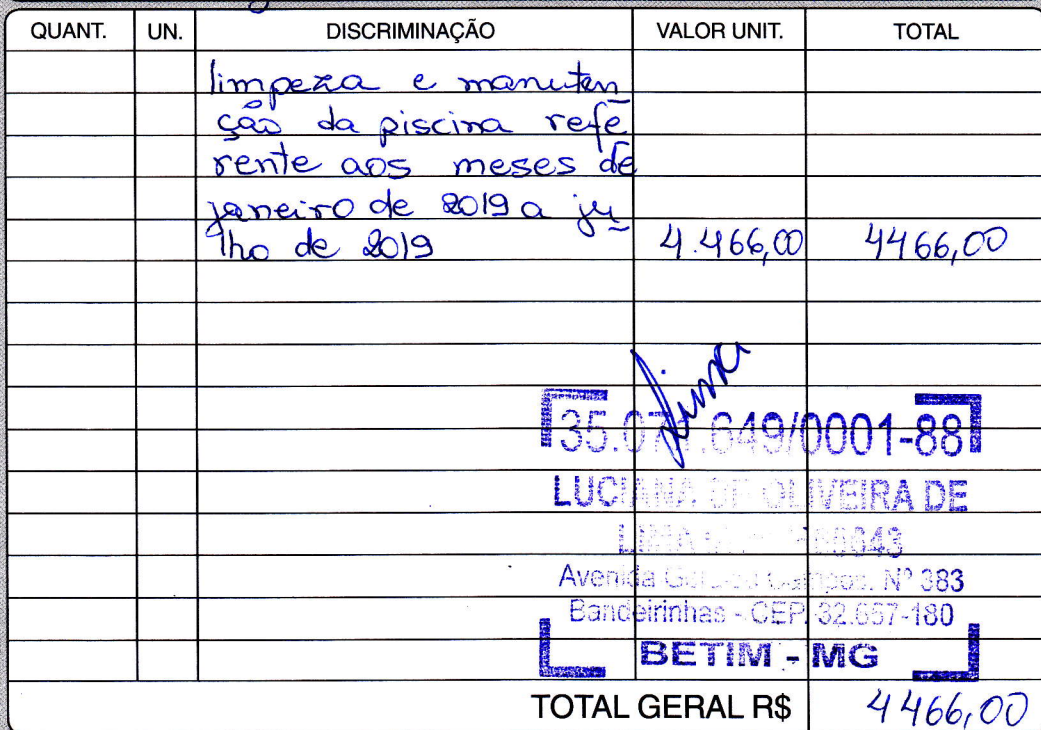 QUANT. UN. DISCRIMINAÇÃO VALOR UNIT. TOTAL
limpeza e manuten
ção da piscina refe
rente aos meses de
janeiro de 2019 a ju
lho de 2019 4.466,00 4466,00
Lima
35.071.649/0001-88
LUCIANA DE OLIVEIRA DE
LIMA
Avenida Campos, Nº 383
Bandeirinhas - CEP. 32.657-180
BETIM - MG
TOTAL GERAL R$ 4466,00